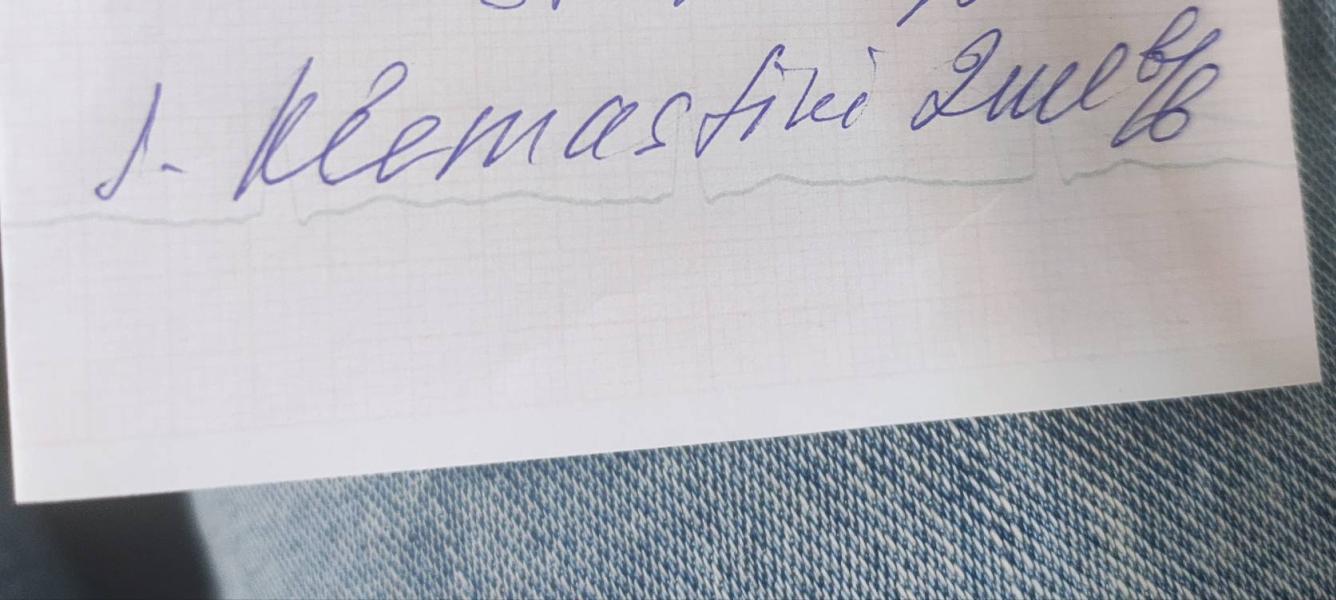 S. Klemastini 2ml в/в